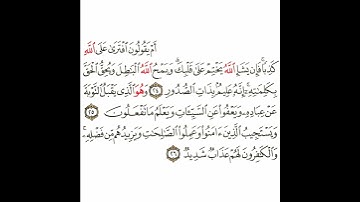 أَمْ يَقُولُونَ ٱفْتَرَىٰ عَلَى ٱللَّهِ
كَذِبًۭا ۖ فَإِن يَشَإِ ٱللَّهُ يَخْتِمْ عَلَىٰ قَلْبِكَ ۗ وَيَمْحُ ٱللَّهُ ٱلْبَـٰطِلَ وَيُحِقُّ ٱلْحَقَّ
بِكَلِمَـٰتِهِۦٓ ۚ إِنَّهُۥ عَلِيمٌۢ بِذَاتِ ٱلصُّدُورِ ٢٤ وَهُوَ ٱلَّذِى يَقْبَلُ ٱلتَّوْبَةَ
عَنْ عِبَادِهِۦ وَيَعْفُوا۟ عَنِ ٱلسَّيِّـَٔاتِ وَيَعْلَمُ مَا تَفْعَلُونَ ٢٥
وَيَسْتَجِيبُ ٱلَّذِينَ ءَامَنُوا۟ وَعَمِلُوا۟ ٱلصَّـٰلِحَـٰتِ وَيَزِيدُهُم مِّن فَضْلِهِۦ ۚ
وَٱلْكَـٰفِرُونَ لَهُمْ عَذَابٌۭ شَدِيدٌۭ ٢٦